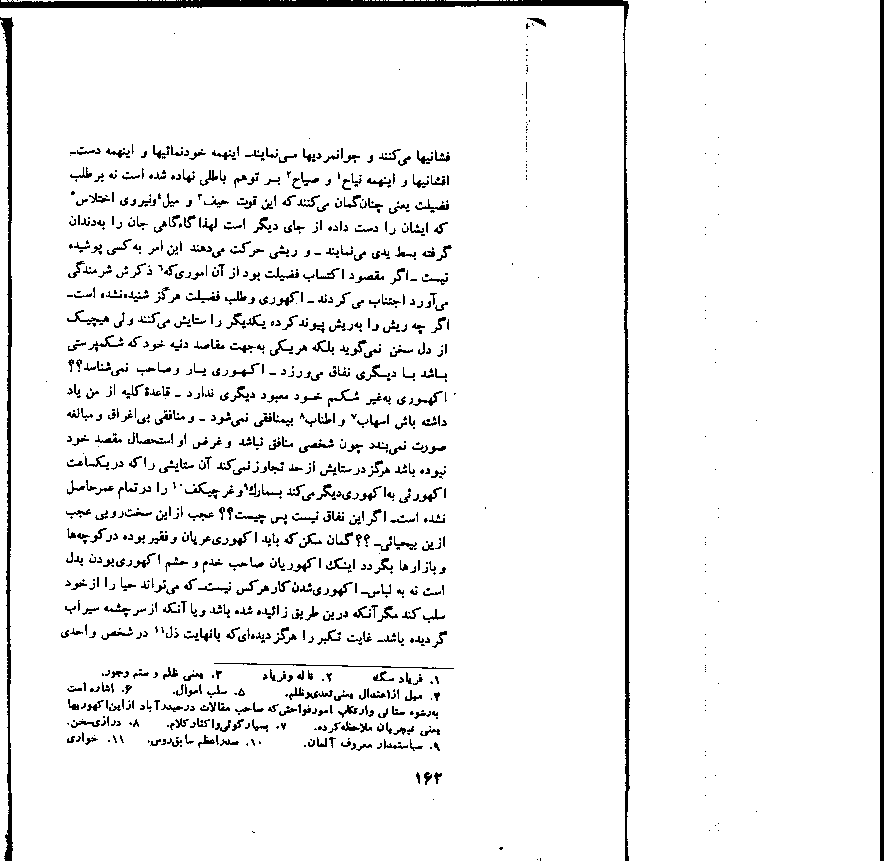 فشانیها می‌کنند و جوانمردیها می‌نمایند ـ اینهمه خودنمائیها و اینهمه دست ـ
افشانیها و اینهمه نیاح۱ و صیاح۲ بر توهم باطلی نهاده شده است نه بر طلب
فضیلت یعنی چنان گمان می‌کنند که این قوت حیف۳ و میل۴ و نیروی اختلاس۵
که ایشان را دست داده از جای دیگر است لهذا گاه‌گاهی جان را به‌دندان
گرفته بسط یدی می‌نمایند ـ و ریشی حرکت می‌دهند این امر به‌کسی پوشیده
نیست ـ اگر مقصود اکتساب فضیلت بود از آن اموری‌که۶ ذکرش شرمندگی
می‌آورد اجتناب می‌کردند ـ اکهوری و طلب فضیلت هرگز شنیده‌نشده است ـ
اگر چه ریش را به‌ریش پیوند کرده یکدیگر را ستایش می‌کنند ولی هیچیک
از دل سخن نمی‌گوید بلکه هر یکی به‌جهت مقاصد دنیه خود که شکم‌پرستی
باشد با دیگری نفاق می‌ورزد ـ اکهوری یار و صاحب نمی‌شناسد؟؟
اکهوری به‌غیر شکم خود معبود دیگری ندارد ـ قاعدهٔ کلیه از من یاد
داشته باش اسهاب۷ و اطناب۸ بیمنافقی نمی‌شود ـ و منافقی بی‌اغراق و مبالغه
صورت نمی‌بندد چون شخصی منافق نباشد و غرض او استحصال مقصد خود
نبوده باشد هرگز در ستایش از حد تجاوز نمی‌کند آن ستایشی را که در یکساعت
اکهورئی به‌اکهوری دیگر می‌کند بسمارك۹ و غرچیکف۱۰ را در تمام عمر حاصل
نشده است ـ اگر این نفاق نیست پس چیست؟؟ عجب از این سخت‌رویی عجب
ازین بیحیائی ـ ؟؟ گمان مکن که باید اکهوری عریان و فقیر بوده در کوچه‌ها
و بازارها بگردد اینك اکهوریان صاحب خدم و حشم اکهوری بودن بدل
است نه به لباس ـ اکهوری شدن کار هر کس نیست ـ که می‌تواند حیا را از خود
سلب کند مگر آنکه درین طریق زائیده شده باشد و یا آنکه از سرچشمه سیراب
گردیده باشد ـ غایت تکبر را هرگز دیده‌ای که بانهایت ذل۱۱ در شخص واحدی
۱. فریاد سگ ۲. ناله و فریاد ۳. یعنی ظلم و ستم وجور.
۴. میل از اعتدال یعنی تعدی و ظلم. ۵. سلب اموال. ۶. اشاره است
به‌رشوه ستانی و ارتکاب امور فواحش که صاحب مقالات در حیدرآباد از این اکهوریها
یعنی نیچریان ملاحظه کرده. ۷. بسیار گوئی و اکثار کلام. ۸. درازی سخن.
۹. سیاستمدار معروف آلمان. ۱۰. صدراعظم سابق روس. ۱۱. خواری
۱۶۲